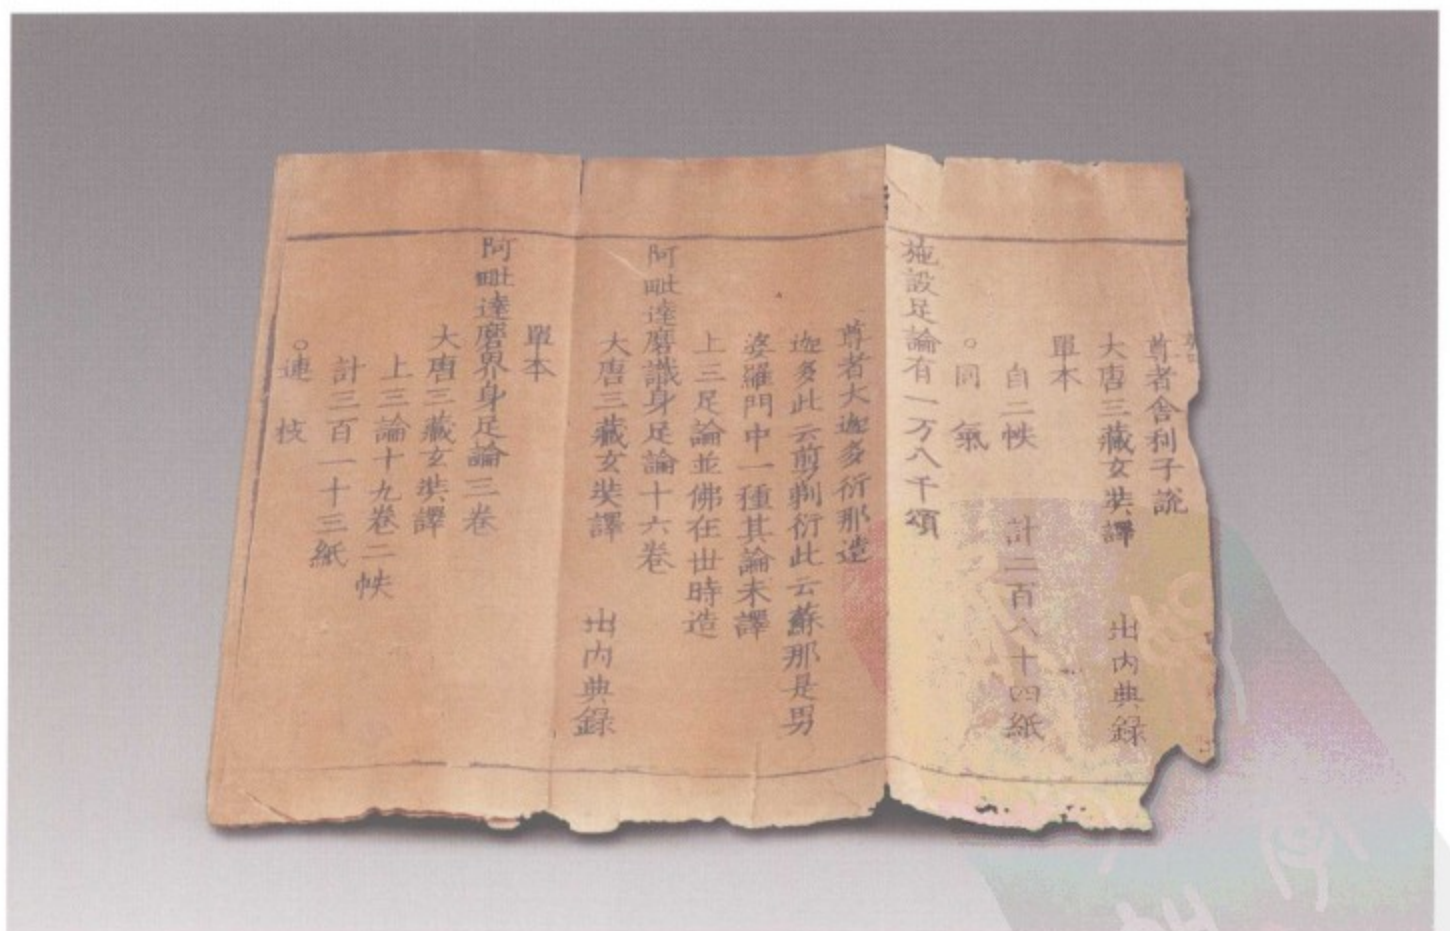 尊者舍利子說
大唐三藏玄奘譯 出內典錄
單本
自二帙 計二百八十四紙
。同氣
施設足論有一万八千頌
尊者大迦多衍那造
迦多此云剪剃衍此云蘇那是男
婆羅門中一種其論未譯
上三足論並佛在世時造
阿毗達磨識身足論十六卷
大唐三藏玄奘譯 出內典錄
單本
阿毗達磨界身足論三卷
大唐三藏玄奘譯
上三論十九卷二帙
計三百一十三紙
。連枝